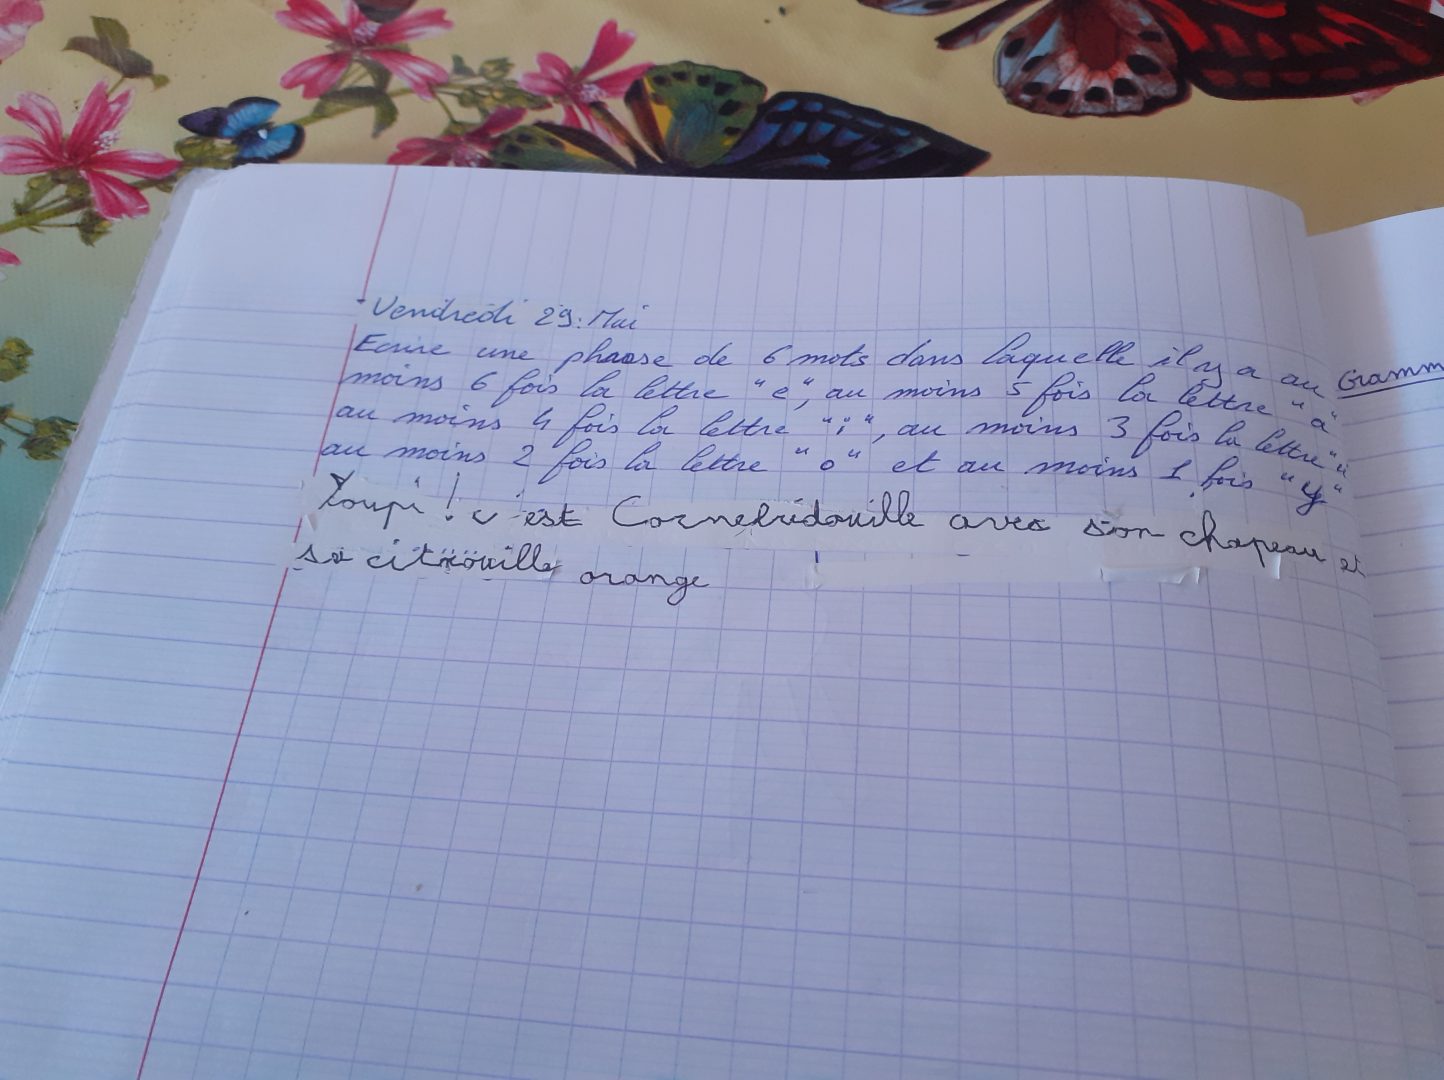 Vendredi 29 Mai
Ecrire une phrase de 6 mots dans laquelle il y a au
moins 6 fois la lettre "e", au moins 5 fois la lettre "a"
au moins 4 fois la lettre "i", au moins 3 fois la lettre "u"
au moins 2 fois la lettre "o" et au moins 1 fois "y"
Youpi ! c'est Cornebidouille avec son chapeau et
sa citrouille orange
Gramm